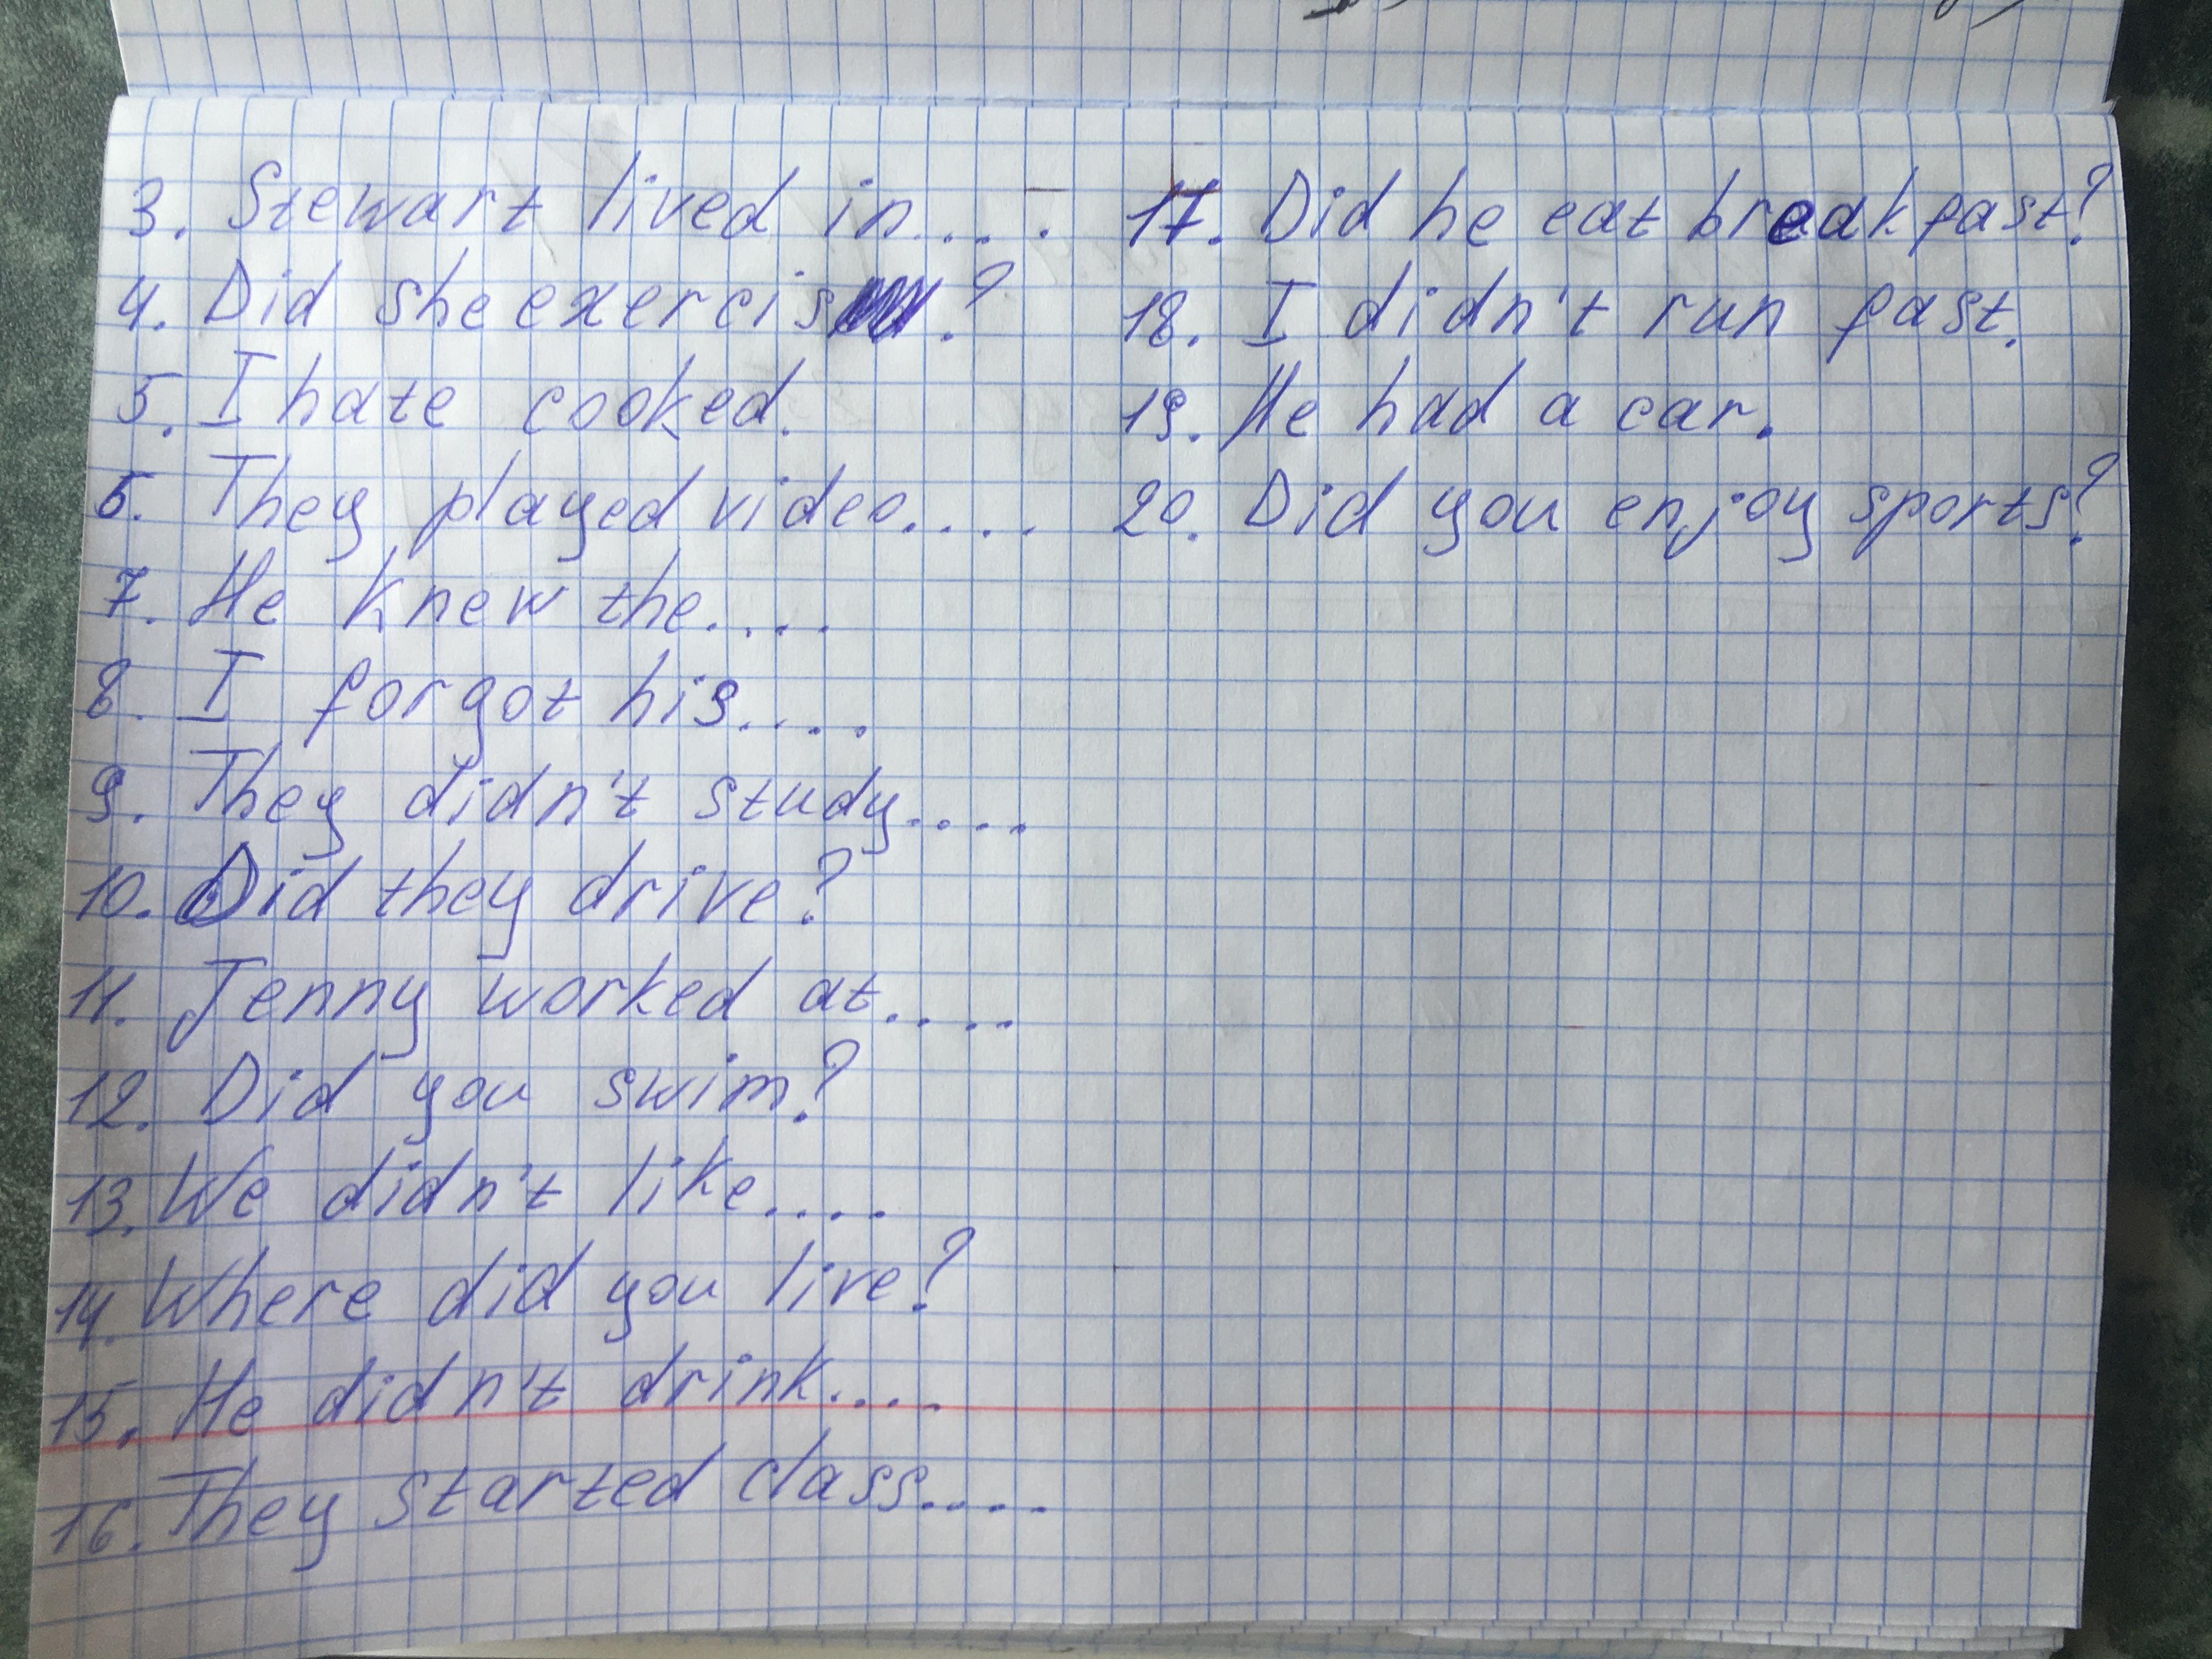 3. Stewart lived in....
4. Did she exercis ?
5. I hate cooked.
6. They played video....
7. He knew the....
8. I forgot his....
9. They didn't study....
10. Did they drive?
11. Jenny worked at....
12. Did you swim?
13. We didn't like....
14. Where did you live?
15. He didn't drink....
16. They started class....
17. Did he eat breakfast?
18. I didn't run fast.
19. He had a car.
20. Did you enjoy sports?